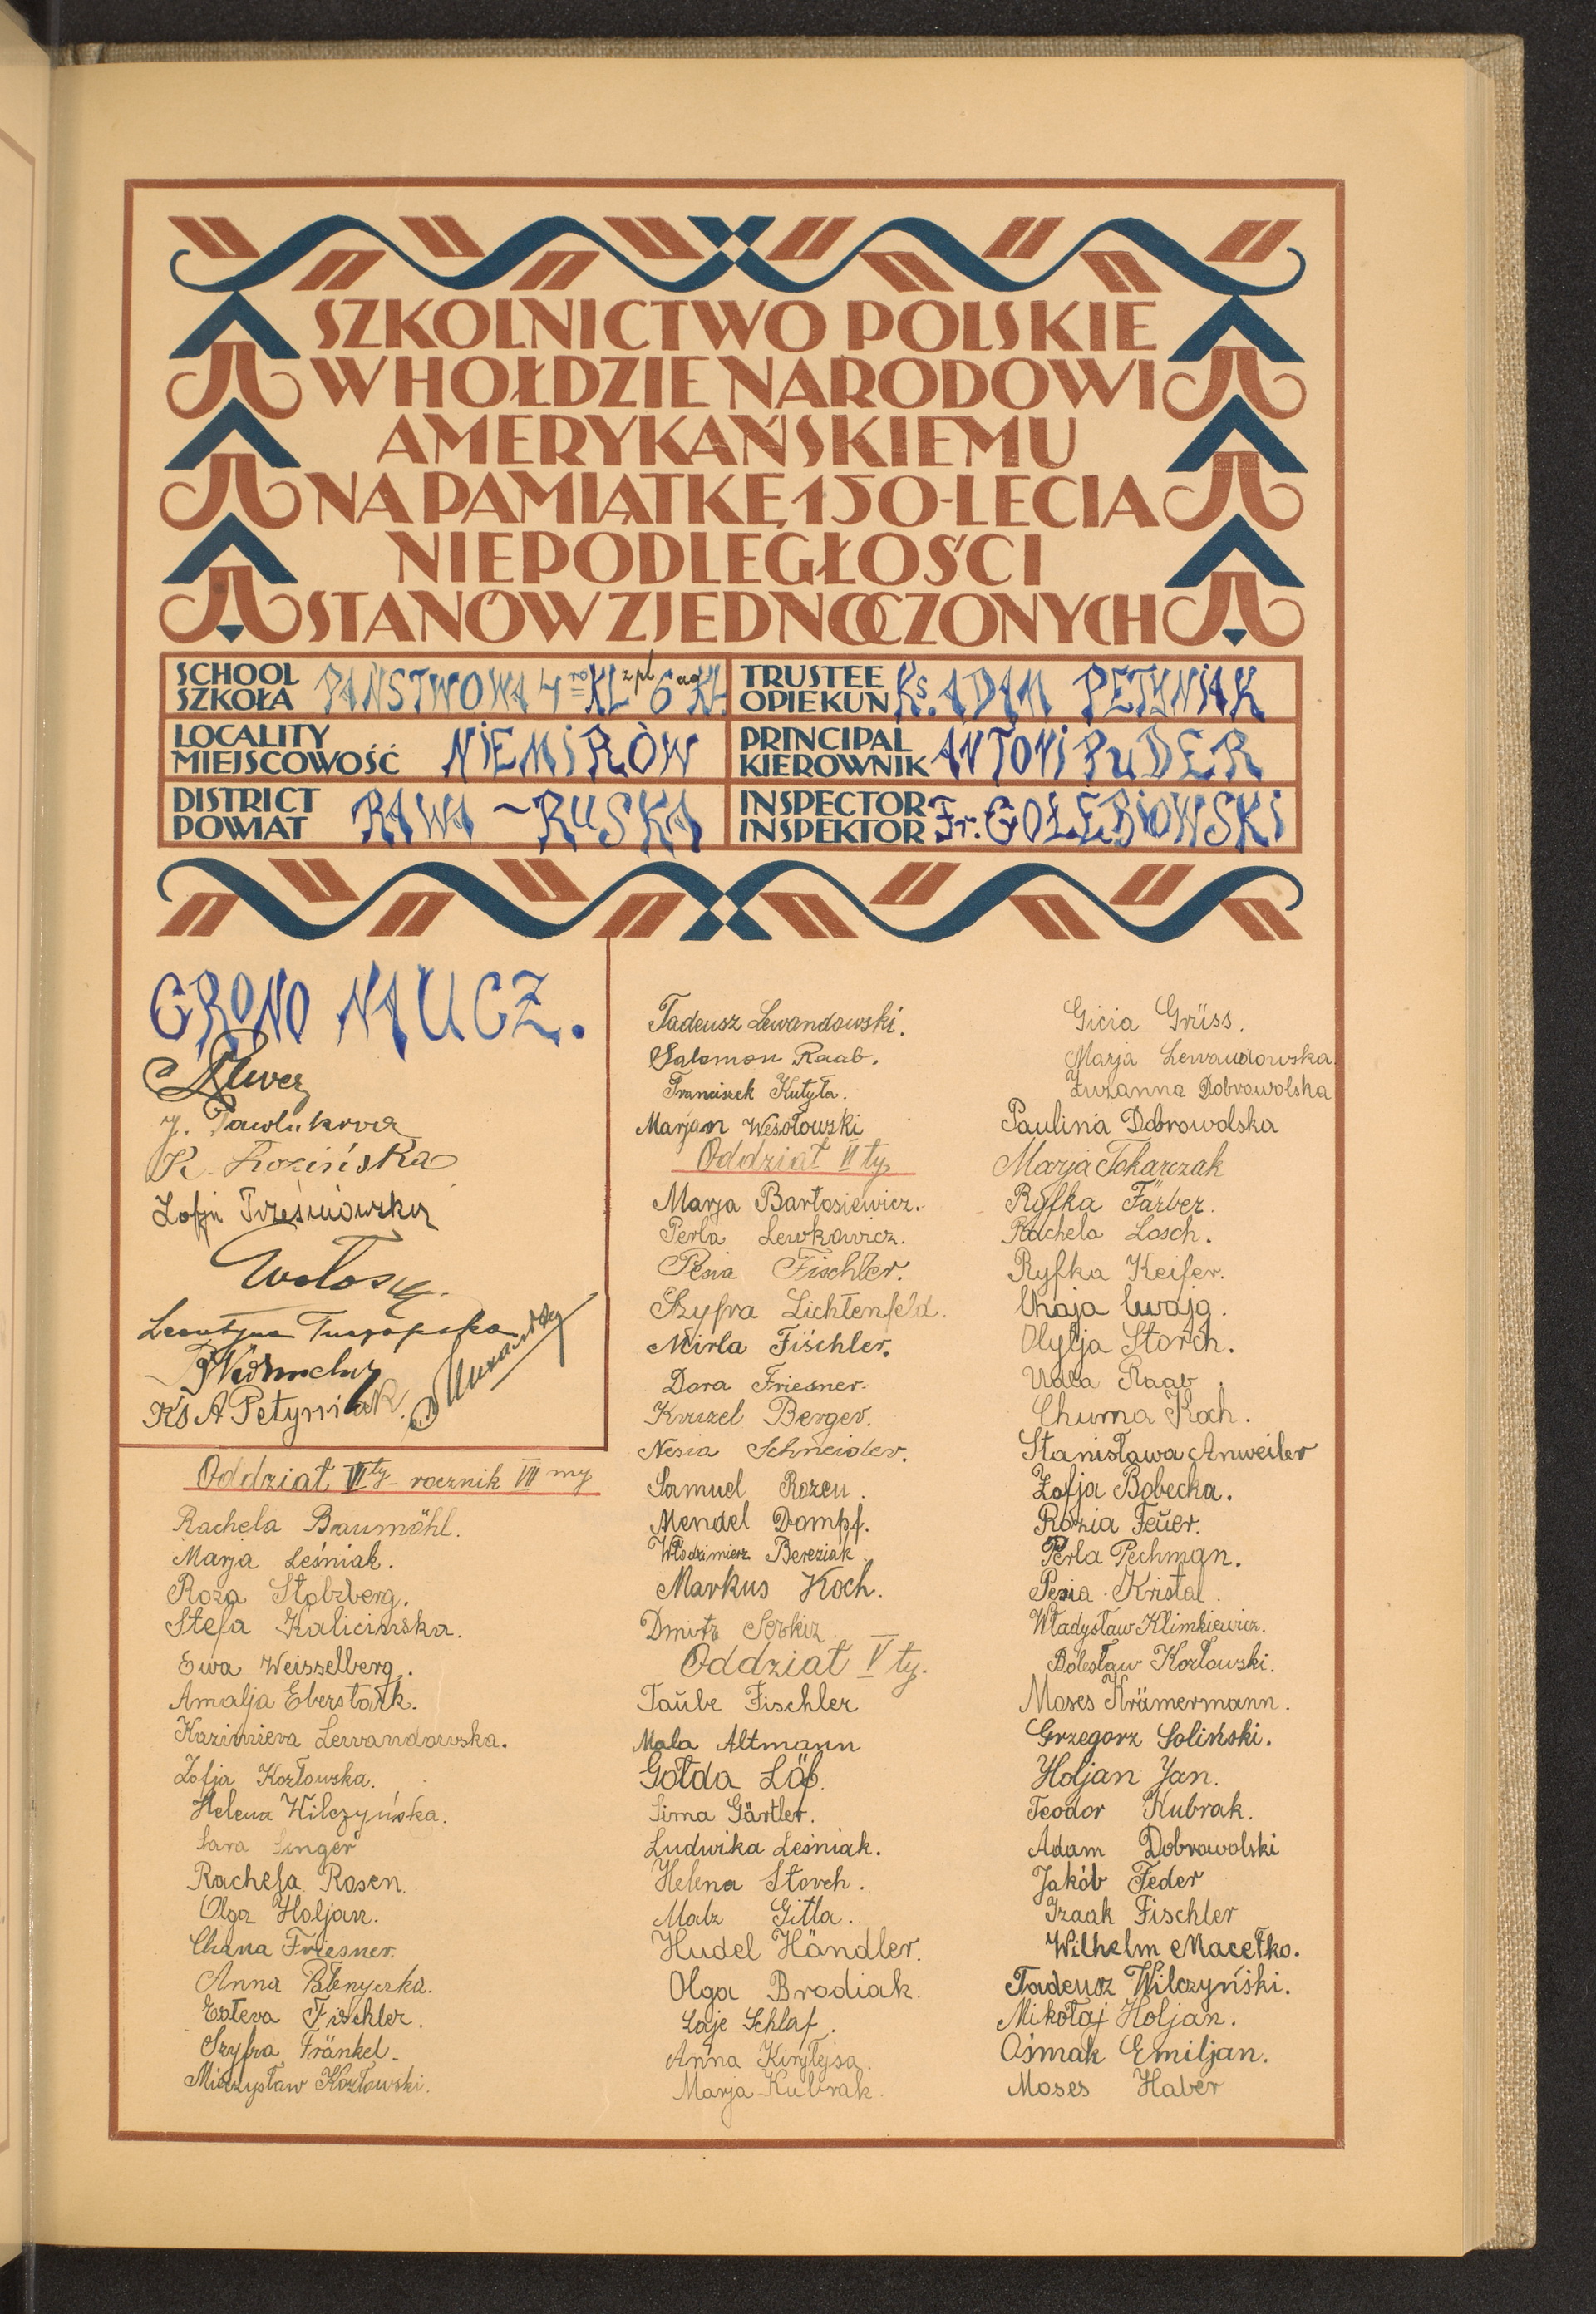 SZKOLNICTWO POLSKIE
W HOŁDZIE NARODOWI
AMERYKAŃSKIEMU
NA PAMIĄTKĘ 150-LECIA
NIEPODLEGŁOŚCI
STANÓW ZJEDNOCZONYCH
SCHOOL
SZKOŁA PAŃSTWOWA 4 ro KL z pl 6 cio KL
TRUSTEE
OPIEKUN Ks. ADAM PETYNIAK
LOCALITY
MIEJSCOWOŚĆ NIEMIRÓW
PRINCIPAL
KIEROWNIK ANTONI PUDER
DISTRICT
POWIAT RAWA ~ RUSKA
INSPECTOR
INSPEKTOR Fr. GOŁĘBIOWSKI
GRONO NAUCZ.
J. Pawlukowa
Zofja
Ks A Petyniak
Oddział VI ty - rocznik VII my
Rachela Baumöhl.
Marja Leśniak.
Roza Stolzberg.
Stefa Kalicinska.
Ewa Weisselberg.
Amalja Eberstark.
Kazimiera Lewandowska.
Zofja Kozłowska.
Helena Wilczyńska.
Sara Singer
Rachela Rosen.
Olga Holjan.
Chana Friesner.
Anna
Estera Fischler.
Szyfra Fränkel.
Mieczysław Kozłowski.
Tadeusz Lewandowski.
Salomon Raab.
Franciszek Kutyła.
Marjan Wesołowski
Oddział VI ty
Marja Bartosiewicz.
Perla Lewkowicz.
Pesia Fischler.
Szyfra Lichtenfeld.
Mirla Fischler.
Dora Friesner.
Berger.
Nesia Schneider.
Samuel Rozen.
Mendel Dampf.
Włodzimierz Bereziak.
Markus Koch.
Dmitr
Oddział V ty.
Taube Fischler
Mala Altmann
Gołda Löb.
Sima Gärtler.
Ludwika Leśniak.
Helena Storch.
Malz Gitla.
Hudel Händler.
Olga Brodiak.
Laje Schlaf.
Anna
Marja Kubrak.
Gicia Grüss.
Marja Lewandowska.
Zuzanna Dobrowolska
Paulina Dobrowolska
Marja Tokarczak
Ryfka Färber.
Rachela Losch.
Ryfka Keifer.
Chaja Cwajg.
Storch.
Raab.
Chuma Koch.
Stanisława Anweiler
Zofja Bobecka.
Rózia Feuer.
Perla Pechman.
Pesia Kristal.
Władysław Klimkiewicz.
Bolesław Kozłowski.
Moses Krämermann.
Grzegorz Soliński.
Holjan Jan.
Teodor Kubrak.
Adam Dobrowolski
Jakób Feder
Izaak Fischler
Wilhelm Macełko.
Tadeusz Wilczyński.
Mikołaj Holjan.
Ośmak Emiljan.
Moses Haber